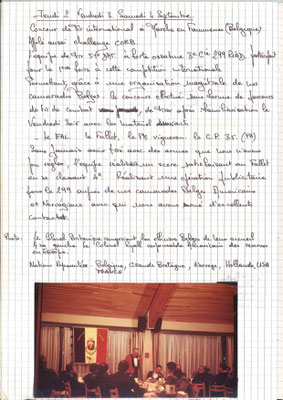 Jeudi 2 Vendredi 3 Samedi 4 Septembre
Concours de tir international à Marche en Famennes (Belgique)
appelé aussi challenge CORB.
L'équipe de tir à forte ossature 3e Cie 299 participait
pour la 1ère fois à cette compétition internationale
Formation, grâce à une organisation magistrale de nos
camarades Belges. Le concours effectué sous forme de parcours
de tir de combat de tir après familiarisation le
Vendredi Soir avec les matériels
le FAL le Fallot, le PM vigneron le C.P. 35. (PA)
Sans jamais avoir tiré avec des armes que nous venions
de régler l'équipe réalisera un score satisfaisant au Fallot
en se classant 4e. Réalisant une opération publicitaire
pour le 299 auprès de nos camarades Belges Américains
et Norvégiens avec qui nous avons noué d'excellents
contacts.
Photo: le Colonel Britannique remerciant les officiers Belges de leur accueil
A sa gauche le Colonel responsable Américain des réserves
en Europe.
Nations Représentées Belgique, Grande Bretagne, Norvège, Hollande, USA
FRANCE